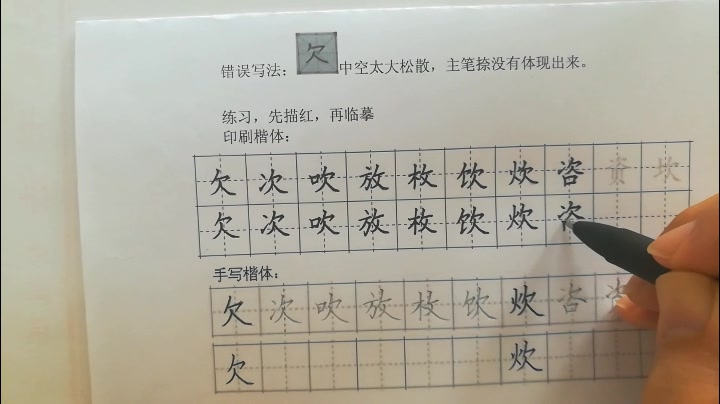 错误写法：欠中空太大松散，主笔捺没有体现出来。
练习，先描红，再临摹
印刷楷体：
欠次吹放枚饮炊咨资坎
欠次吹放枚饮炊
手写楷体：
欠次吹放枚饮炊咨
欠炊